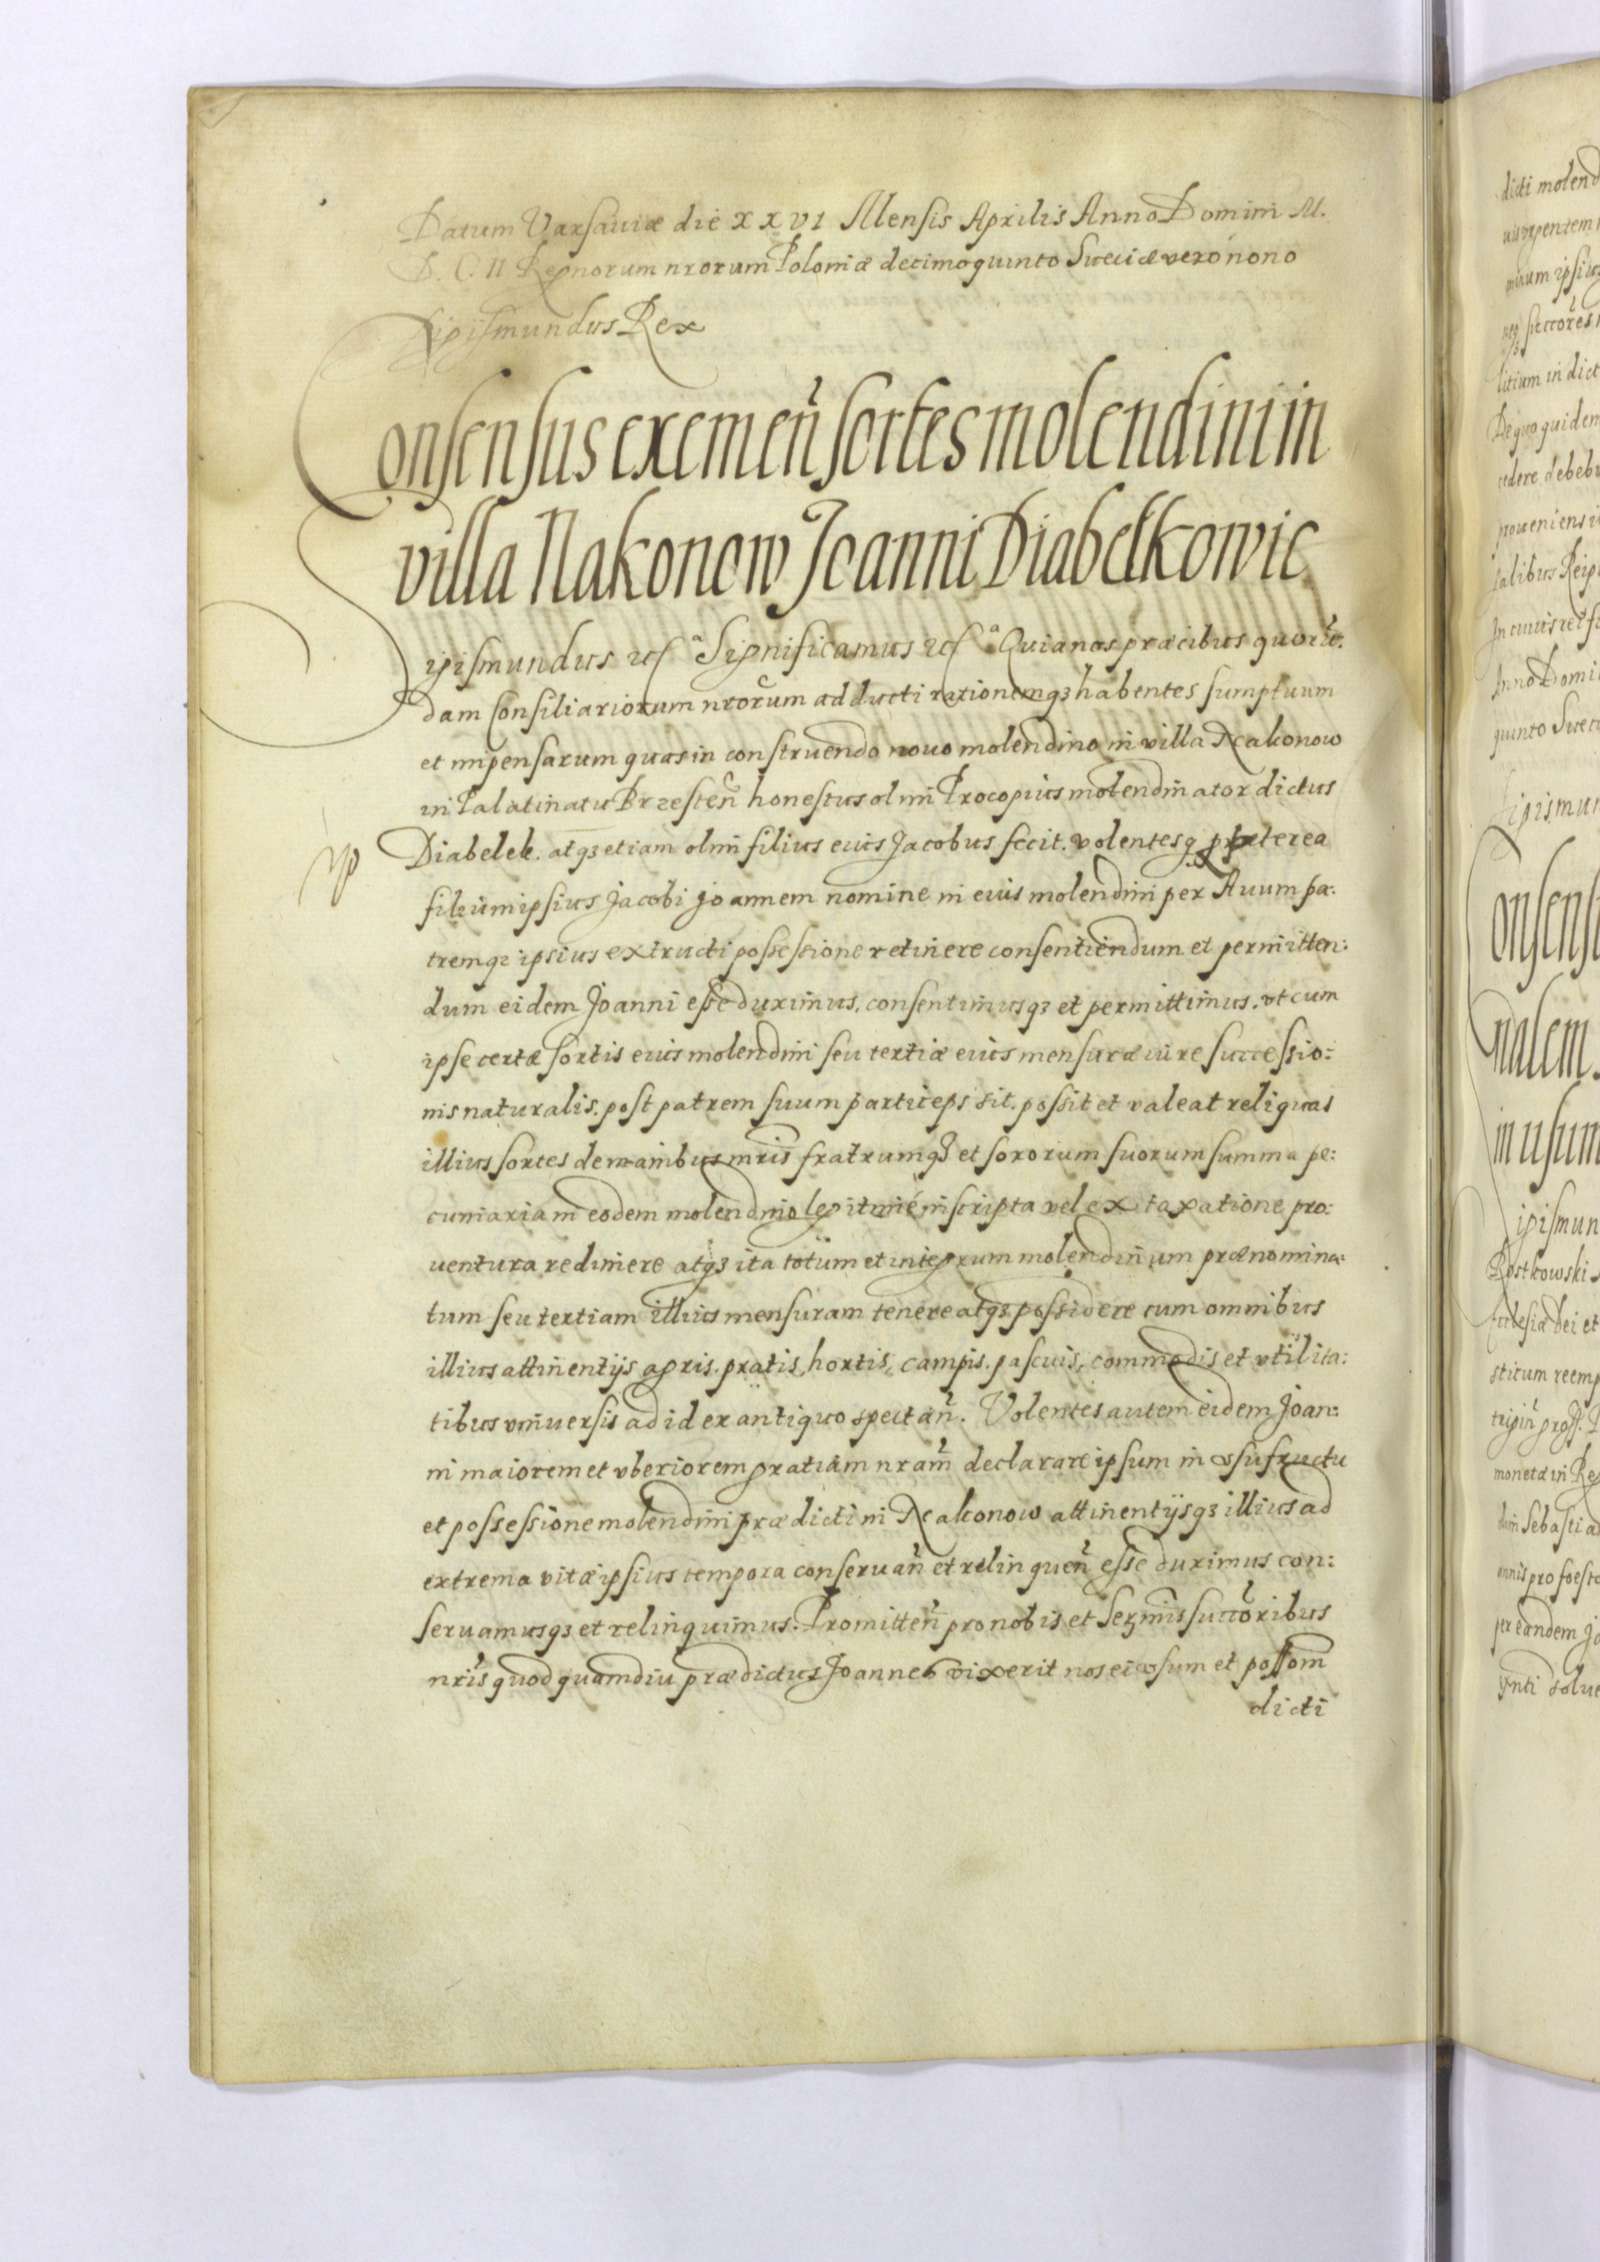 Datum Varsaviæ die XXVI Mensis Aprilis Anno Domini M.
D. C. II Regnorum nrorum Poloniæ decimoquinto Sueciæ vero nono
Sigismundus Rex
Consensus exemen sortes molendini in
villa Nakonow Joanni Diabelkowic
Sigismundus etc Significamus etc Quia nos præcibus quorū:
dam Consiliariorum nrorum adducti rationemq3 habentes sumptuum
et impensarum quas in construendo nouo molendino in villa Nakonow
in Palatinatu Brzesteñ honestus olim Procopius molendinator dictus
Diabelek. atq3 etiam olim filius eius Jacobus fecit. volentesq præterea
filium ipsius Jacobi Joannem nomine in eius molendini per Auum pa:
tremq3 ipsius extructi possessione retinere consentiendum et permitten:
dum eidem Joanni esse duximus. consentimusq3 et permittimus. vt cum
ipse certæ sortis eius molendini seu tertiæ eius mensuræ iure successio:
nis naturalis. post patrem suum particeps sit. possit et valeat reliquas
illius sortes de manibus mris fratrumq3 et sororum suorum summa pe:
cuniaria in eodem molendino legitimé inscripta vel ex taxatione pro:
uentura redimere atq3 ita totum et integrum molendinum prænomina:
tum seu tertiam illius mensuram tenere atq3 possidere cum omnibus
illius attinentijs agris. pratis, hortis, campis. pascuis, commodis et vtilita:
tibus vniuersis ad id ex antiquo spectañ. Volentes autem eidem Joan:
ni maiorem et vberiorem gratiam nram declarare ipsum in vsufructu
et possessione molendini prædicti in Nakonow attinentijsq3 illius ad
extrema vitæ ipsius tempora conseruañ et relinqueñ esse duximus con:
seruamusq3 et relinquimus. Promitteñ pro nobis et Sermis succoribus
nris quod quamdiu prædictus Joannes vixerit nos ei vsum et possom
dicti
dicti molend
mium ipsius
succores
litium in dict
De quo quidem
cedere debebu
proueniens i
salibus Reip
In cuius rei f
Anno Domi
quinto Suec
Sigismun
Consensu
nalem
in usum
Sigismun
Ecclesiæ Dei et
stitum reemp
monetæ in Re
Sebastia
per eandem Jo
solue